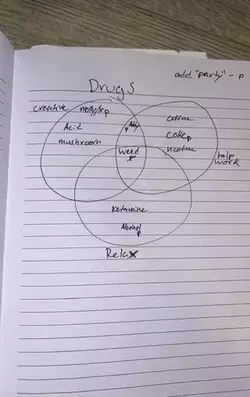 add "party" - p
Drugs
creative molly/x p
Acid
mushroom
caffine
coke p
nicotine
weed
p
help
work
ketamine
Alcohol
p
Relax